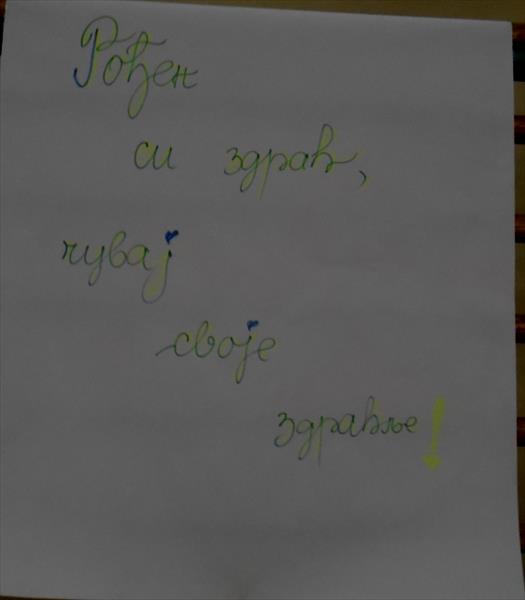 Рођен
си здрав,
чувај
своје
здравље!